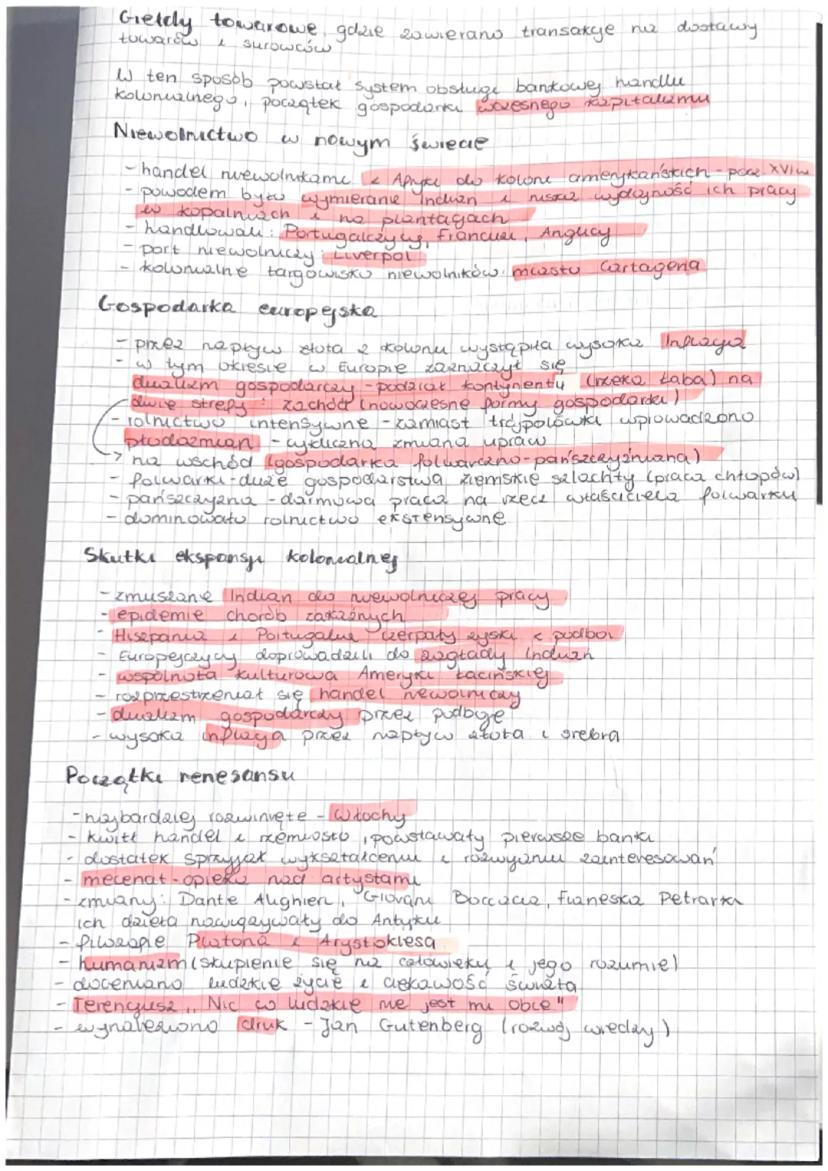 Giełdy towarowe, gdzie zawierano transakcje na dostawy
towarów i surowców
W ten sposób powstał system obsługi bankowej handlu
kolonialnego, początek gospodarki wczesnego kapitalizmu
Niewolnictwo w nowym świecie
- handel niewolnikami z Afryki do kolonii amerykańskich - pocz. XVI w
- powodem było wymieranie Indian i niska wydajność ich pracy
w kopalniach i na plantacjach
- handlowali: Portugalczycy, Francuzi, Anglicy
- port niewolniczy: Liverpol
- kolonialne targowisko niewolników: miasto Cartagena
Gospodarka europejska
- przez napływ złota z kolonii wystąpiła wysoka Inflacja
- w tym okresie w Europie zaznaczył się
dualizm gospodarczy - podział kontynentu (rzeka Łaba) na
dwie strefy: zachód (nowoczesne formy gospodarki)
- rolnictwo intensywne - zamiast trójpolówki wprowadzono
płodozmian - cykliczna zmiana upraw
na wschód (gospodarka folwarczno-pańszczyźniana)
- folwarki - duże gospodarstwa ziemskie szlachty (praca chłopów)
- pańszczyzna - darmowa praca na rzecz właściciela folwarku
- dominowało rolnictwo ekstensywne
Skutki ekspansji kolonialnej
- zmuszanie Indian do niewolniczej pracy
- epidemie chorób zakaźnych
- Hiszpania i Portugalia czerpały zyski z podboi
- Europejczycy doprowadzili do zagłady Indian
- wspólnota kulturowa Ameryki Łacińskiej
- rozprzestrzeniał się handel niewolniczy
- dualizm gospodarczy przez podboje
- wysoka inflacja przez napływ złota i srebra
Początki renesansu
- najbardziej rozwinięte - Włochy
- kwitł handel i rzemiosło, powstawały pierwsze banki
- dostatek sprzyjał wykształceniu i rozwijaniu zainteresowań
- mecenat - opieka nad artystami
- zmiany: Dante Alighieri, Giovani Boccacia, Franeska Petrarka
ich dzieła nawiązywały do Antyku
- filozofie Platona i Arystoklesa
- humanizm (skupienie się na człowieku i jego rozumie)
- doceniano ludzkie życie i ciekawość świata
- Terencjusz „Nic co ludzkie nie jest mi obce"
- wynaleziono druk - Jan Gutenberg (rozwój wiedzy)